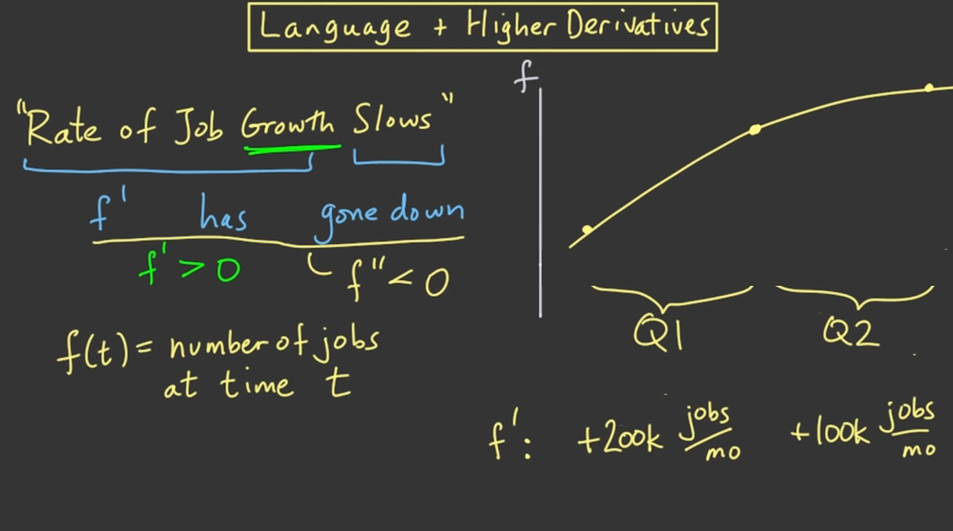 Language + Higher Derivatives
"Rate of Job Growth Slows"
f' has gone down
f' > 0
f'' < 0
f(t) = number of jobs
at time t
f
Q1 Q2
f': +200k jobs/mo +100k jobs/mo